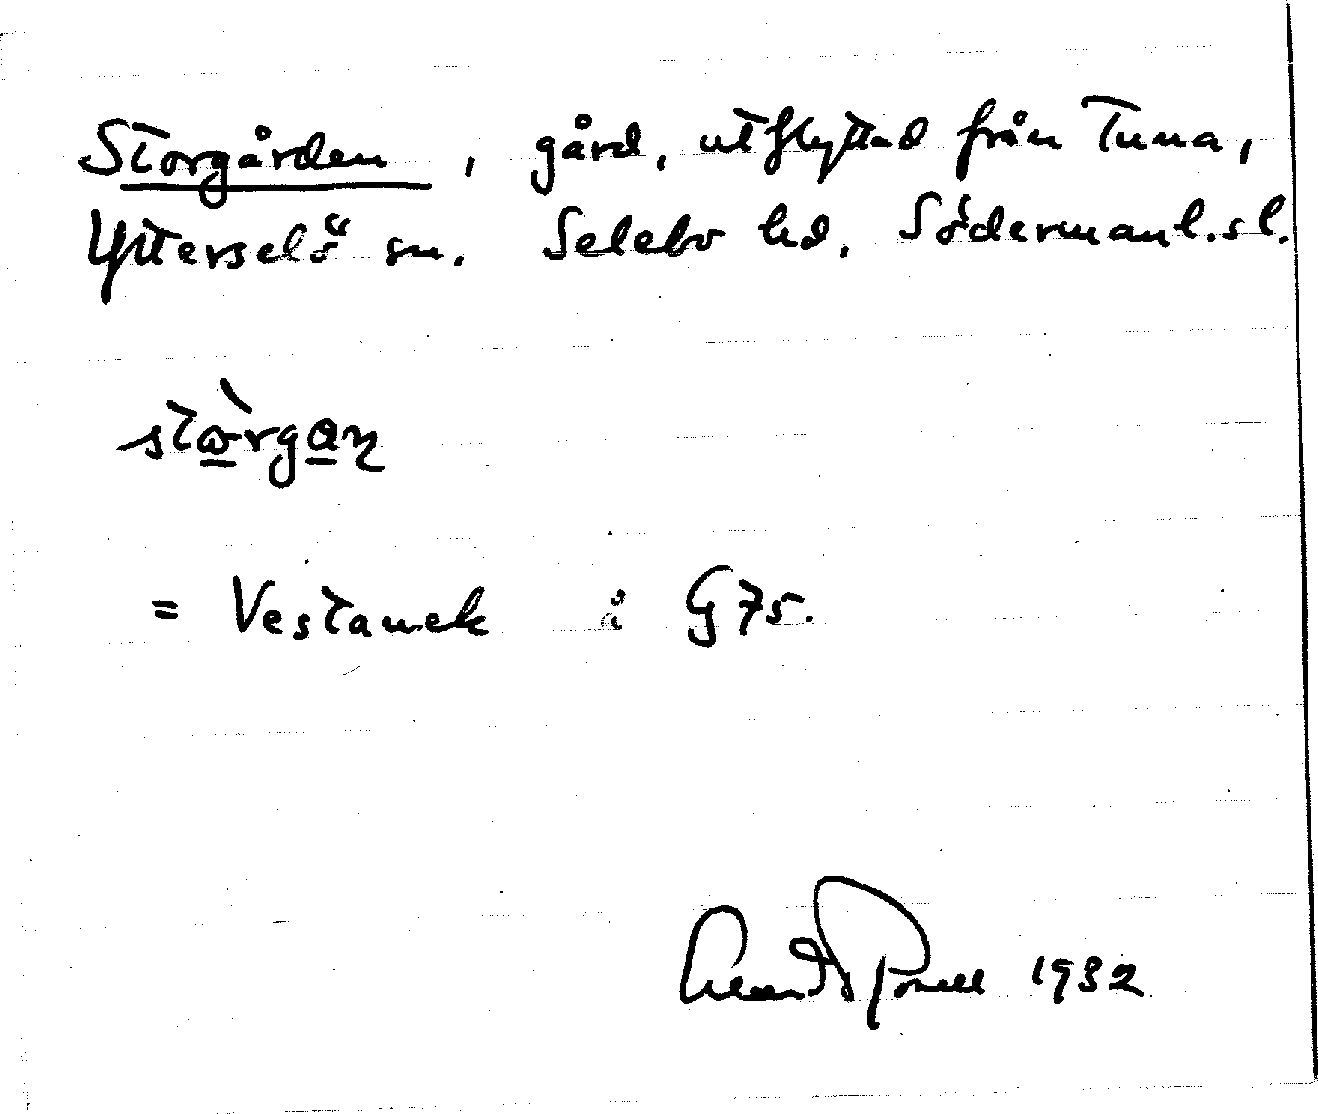 Storgården, gård, utflyttad från Tuna,
Ytterselö sn. Selebo hd. Södermanl.s l.
stòrgan
= Vestanek å G 75.
1932